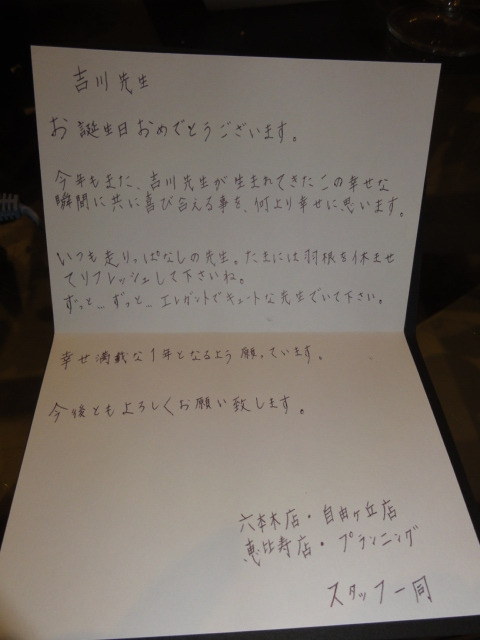 吉川先生
お誕生日おめでとうございます。
今年もまた、吉川先生が生まれてきたこの幸せな
瞬間に共に喜び合える事を、何より幸せに思います。
いつも走りっぱなしの先生。たまには羽根を休ませ
てリフレッシュして下さいね。
ずっと…ずっと…エレガントでキュートな先生でいて下さい。
幸せ満載な1年となるよう願っています。
今後ともよろしくお願い致します。
六本木店・自由ヶ丘店
恵比寿店・プランニング
スタッフ一同